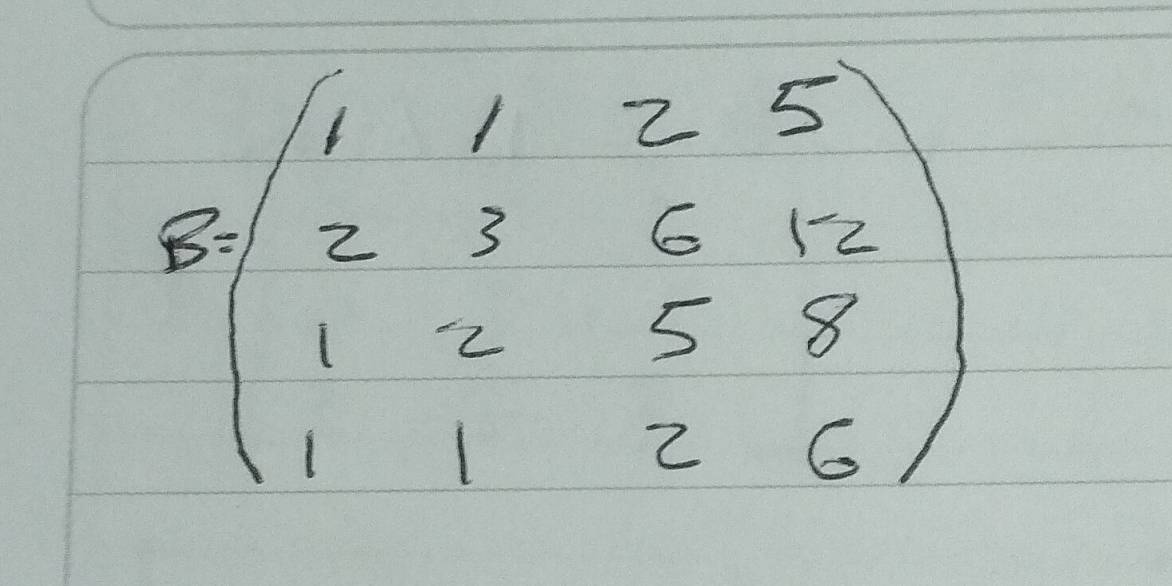 1 1 2 5
B= 2 3 6 12
1 2 5 8
1 1 2 6